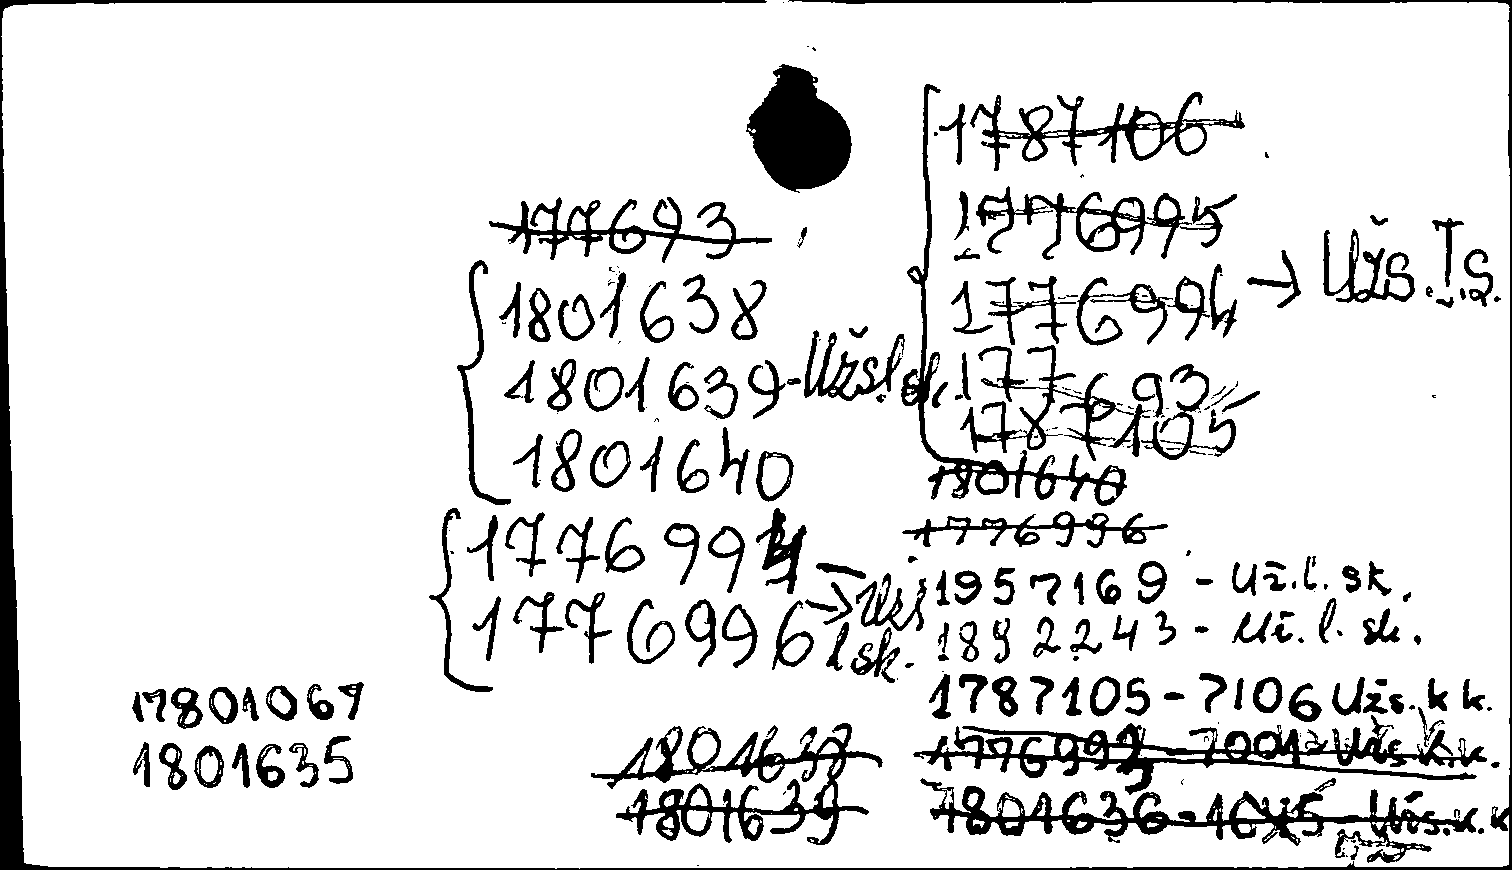 177693
1801638
1801639 - Užsl. sk.
1801640
1776994
1776996 → Užs
l sk.
17801067
1801635
1801638
1801639
1787106
1776995
1776994 → Užs. I.S.
177693
1787105
1801640
1776996
1957169 - Už. l. sk.
1892243 - Už. l. sk.
1787105 - 7106 Užs. k k.
1776993 - 7001 - Užs k.k.
1801636 - 1645 - Užs. k. k